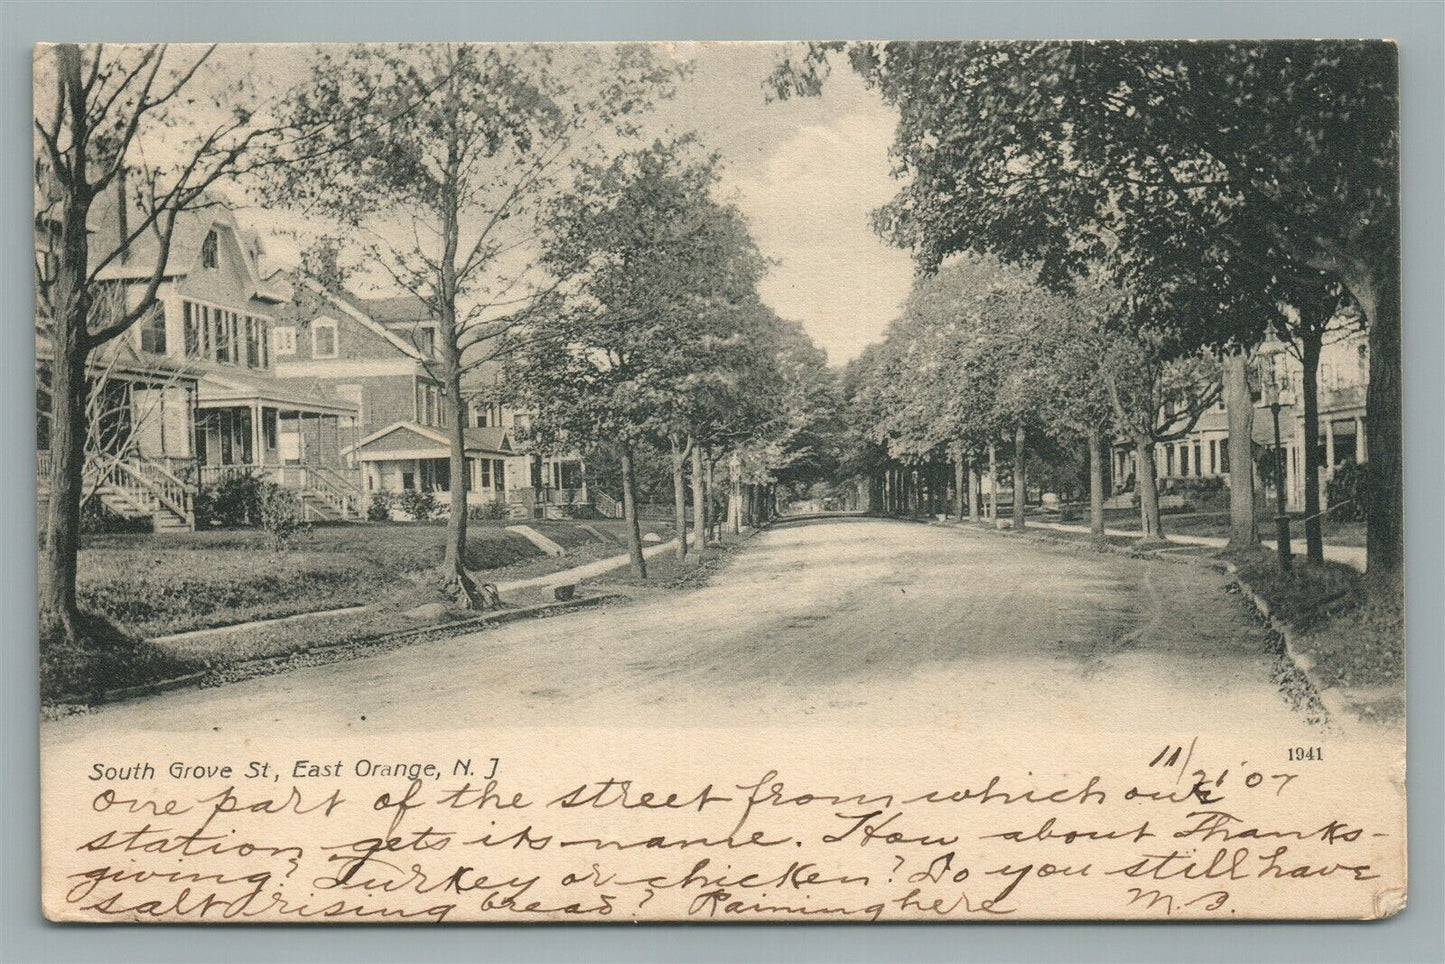 1941
South Grove St, East Orange, N. J
11/21 '07
One part of the street from which our
station gets its name. How about Thanks-
giving? Turkey or chicken? Do you still have
salt rising bread? Raining here M. B.